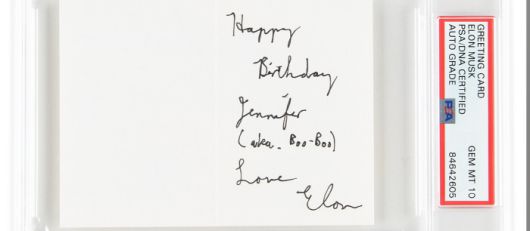 Happy
Birthday
Jennifer
(aka. Boo-Boo)
Love
Elon
GREETING CARD
ELON MUSK
PSA/DNA CERTIFIED
AUTO GRADE
GEM MT 10
84642605
PSA